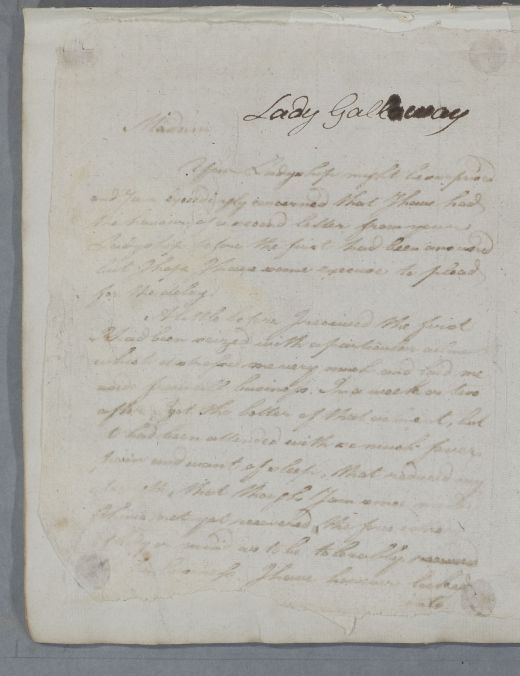 Lady Gallaway
Madam
Your Ladyship might be surprised
and I am exceedingly concerned that I have had
the honour of a second letter from your
Ladyship before the first had been answered
but I hope I have some excuse to plead
for the delay.
A little before I received the first
I had been seized with a particular
which distressed me very much and
business. In a week or two
after I got the better of that ailment, but
I had been attended with so much fever,
pain and want of sleep, that reduced my
that though I am now
I have not yet recovered the
mind as to be tolerably
I have however looked
into